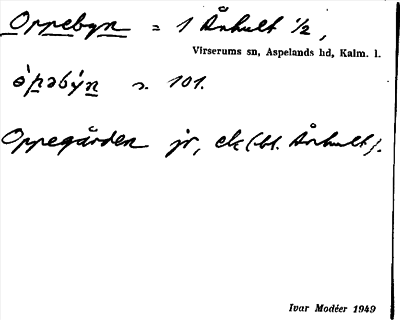 Oppebyn = 1 Århult 1/2,
Virserums sn, Aspelands hd, Kalm. l.
101.
Oppegården jr, ek (bl. Århult).
Ivar Modéer 1949